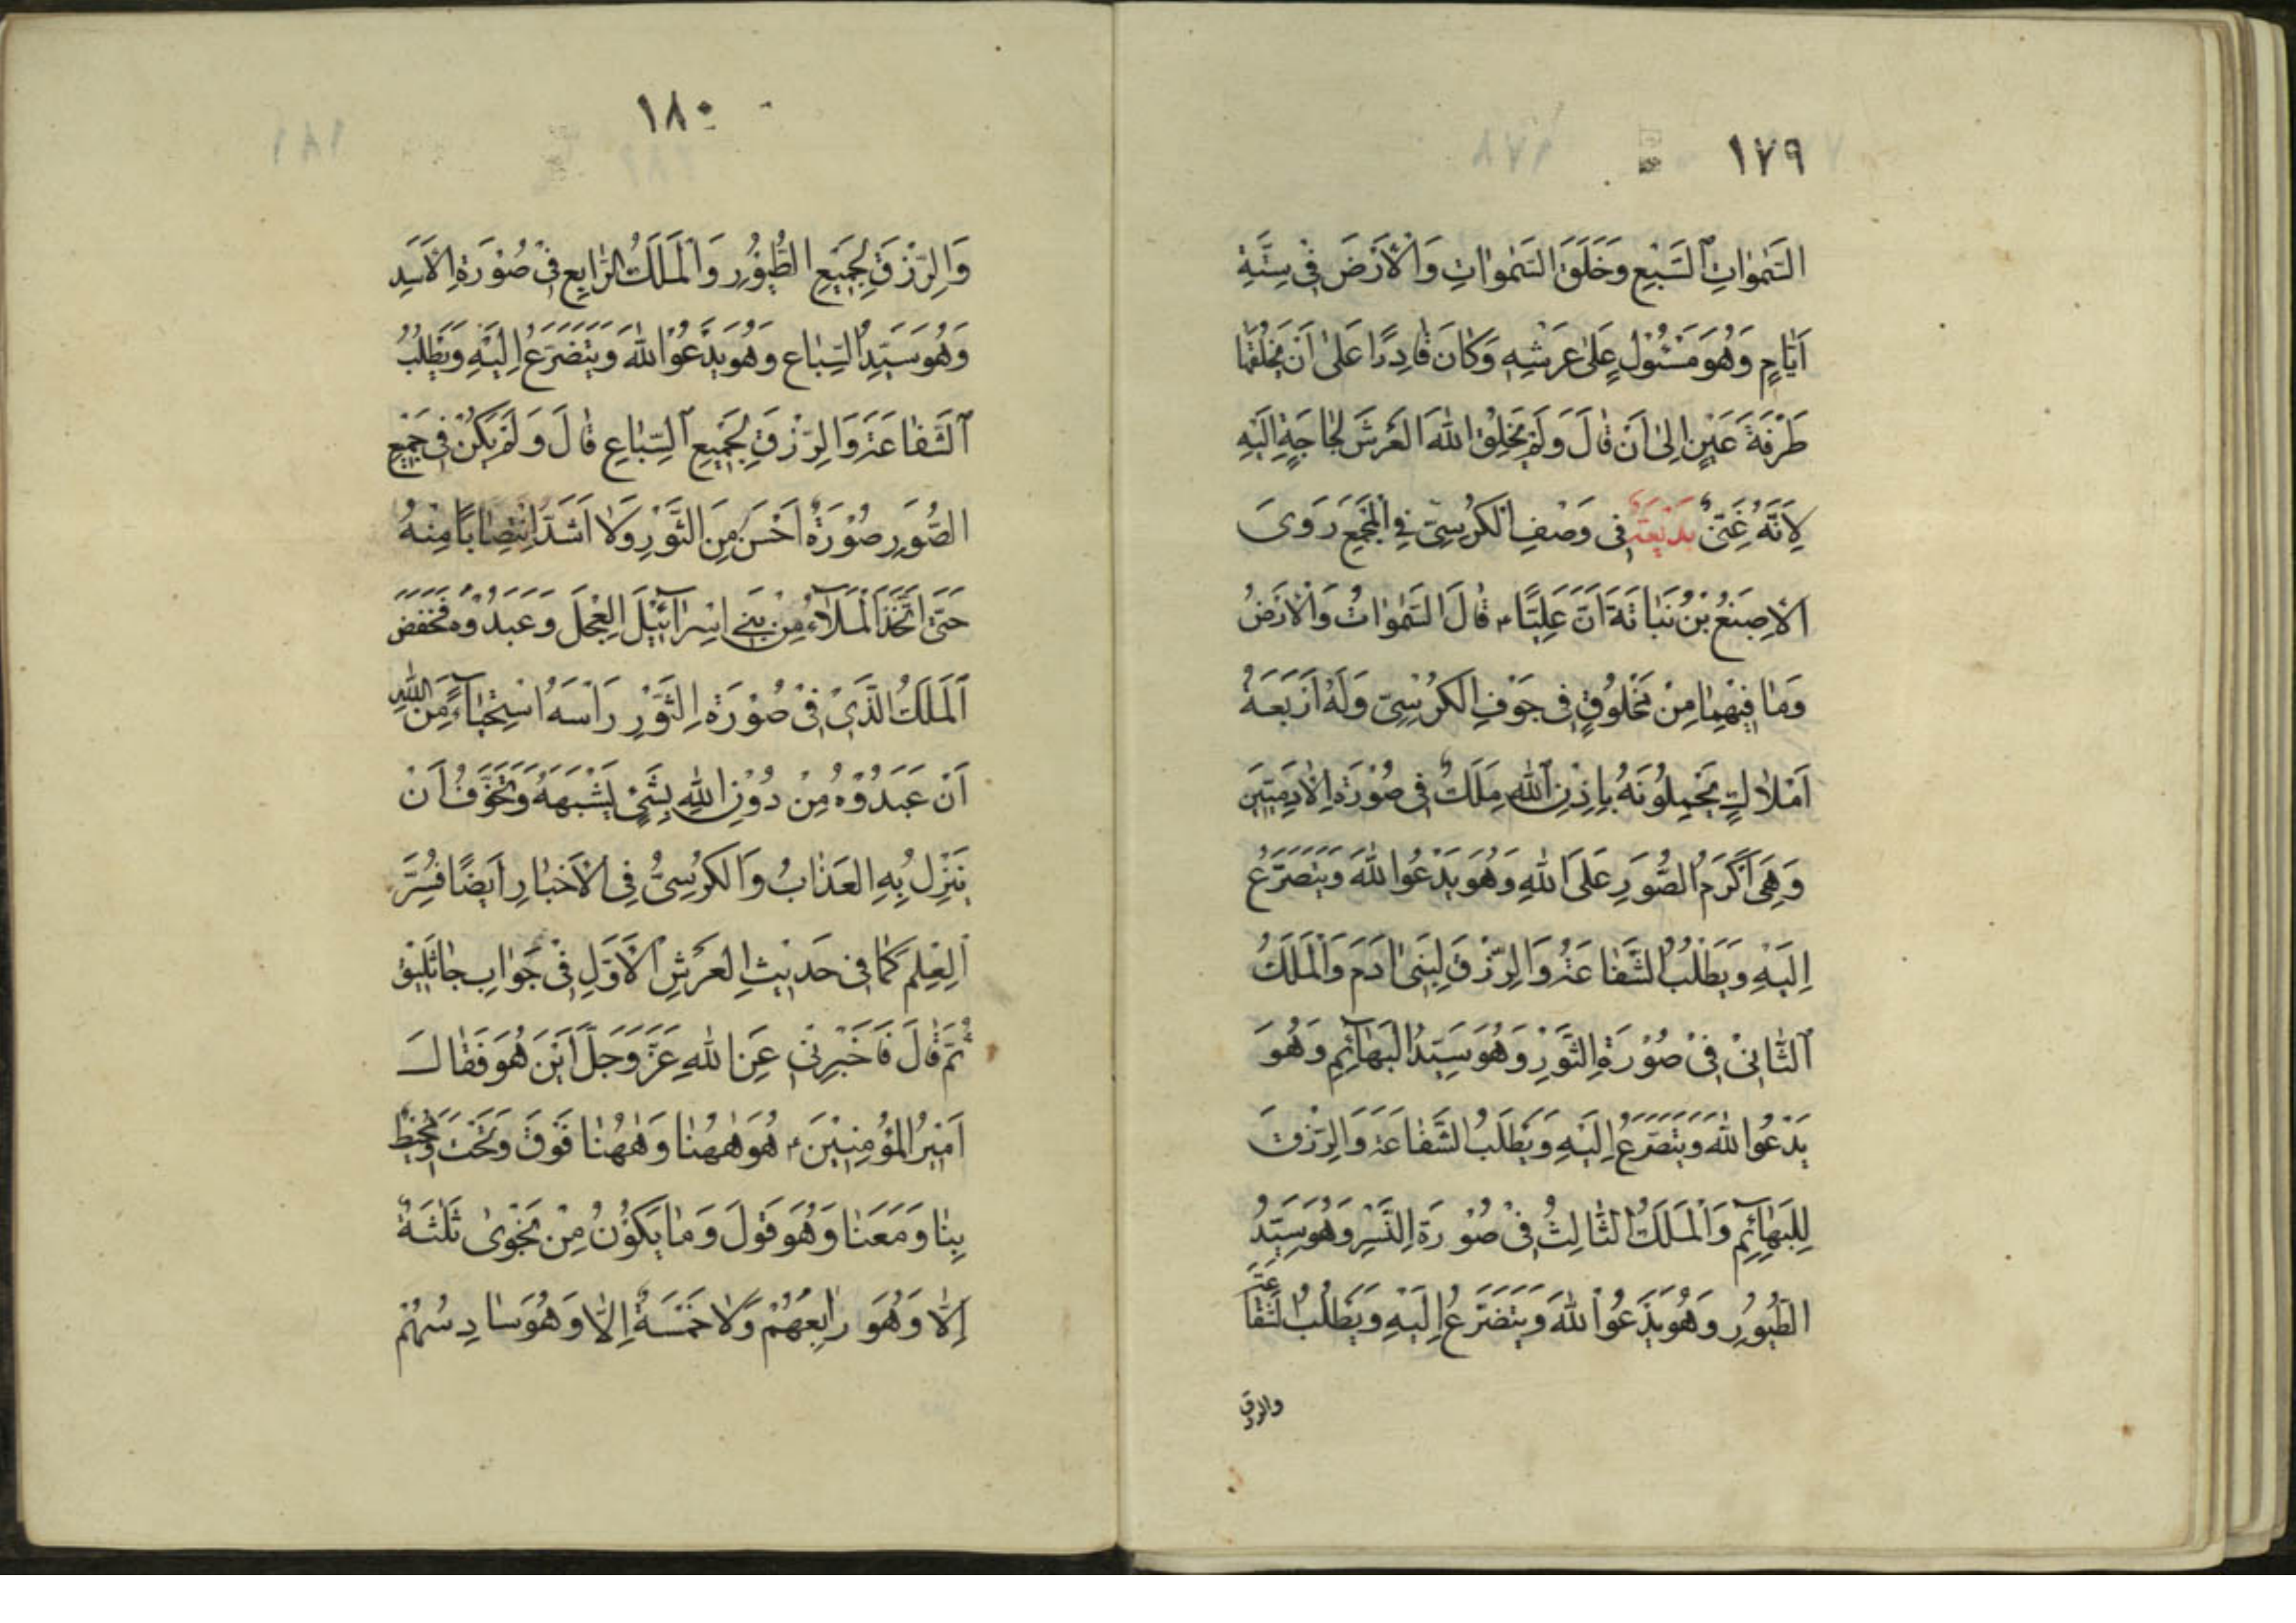 ١٧٩
السَّمٰوَاتِ السَّبْعِ وَخَلَقَ السَّمٰوَاتِ وَالْأَرْضَ فِي سِتَّةِ
اَيَّامٍ وَهُوَ مَسْئُوْلٍ عَلىٰ عَرْشِهِ وَكَانَ قَادِرًا عَلىٰ اَنْ يَخْلُقَهَا
طَرْفَةَ عَيْنٍ اِلىٰ اَنْ قَالَ وَلَمْ يَخْلُقِ اللهُ الْعَرْشَ لِحَاجَةٍ اِلَيْهِ
لِاَنَّهُ غَنِيٌّ بَدِيْعَةٌ فِي وَصْفِ الْكُرْسِيِّ فِي الْمَجْمَعِ رَوىَ
الْاَصْبَغُ بْنُ نَبَاتَةَ اَنَّ عَلِيًّا ٤ قَالَ السَّمٰوَاتُ وَالْاَرْضُ
وَمَا فِيْهِمَا مِنْ مَخْلُوْقٍ فِي جَوْفِ الْكُرْسِيِّ وَلَهُ اَرْبَعَةُ
اَمْلَاكٍ يَحْمِلُوْنَهُ بِاِذْنِ اللهِ مَلَكٌ فِي صُوْرَةِ الْاٰدَمِيِّيْنَ
وَهِيَ اَكْرَمُ الصُّوَرِ عَلَى اللهِ وَهُوَ يَدْعُوا اللهَ وَيَتَضَرَّعُ
اِلَيْهِ وَيَطْلُبُ الشَّفَاعَةَ وَالرِّزْقَ لِبَنِي اٰدَمَ وَالْمَلَكُ
الثَّانِيْ فِيْ صُوْرَةِ الثَّوْرِ وَهُوَ سَيِّدُ الْبَهَائِمِ وَهُوَ
يَدْعُوا اللهَ وَيَتَضَرَّعُ اِلَيْهِ وَيَطْلُبُ الشَّفَاعَةَ وَالرِّزْقَ
لِلْبَهَائِمِ وَالْمَلَكُ الثَّالِثُ فِيْ صُوْرَةِ النَّسْرِ وَهُوَ سَيِّدُ
الطُّيُوْرِ وَهُوَ يَدْعُوا اللهَ وَيَتَضَرَّعُ اِلَيْهِ وَيَطْلُبُ الشَّفَاعَةَ
والرزق
١٨٠
وَالرِّزْقَ لِجَمِيْعِ الطُّيُوْرِ وَالْمَلَكُ الرَّابِعُ فِيْ صُوْرَةِ الْاَسَدِ
وَهُوَ سَيِّدُ السِّبَاعِ وَهُوَ يَدْعُوا اللهَ وَيَتَضَرَّعُ اِلَيْهِ وَيَطْلُبُ
الشَّفَاعَةَ وَالرِّزْقَ لِجَمِيْعِ السِّبَاعِ قَالَ وَلَمْ يَكُنْ فِي جَمِيْعِ
الصُّوَرِ صُوْرَةٌ اَحْسَنَ مِنَ الثَّوْرِ وَلَا اَشَدَّ اِنْتِصَابًا مِنْهُ
حَتّىٰ اتَّخَذَ الْمَلَاءُ مِنْ بَنِي اِسْرَآئِيْلَ الْعِجْلَ وَعَبَدُوْهُ فَخَفَضَ
الْمَلَكُ الَّذِيْ فِيْ صُوْرَةِ الثَّوْرِ رَاْسَهُ اسْتِحْيَآءً مِنَ اللهِ
اَنْ عَبَدُوْهُ مِنْ دُوْنِ اللهِ بِشَيْءٍ يَشْبَهُهُ وَتَخَوَّفُ اَنْ
يَنْزِلَ بِهِ الْعَذَابُ وَالْكُرْسِيُّ فِي الْاَخْبَارِ اَيْضًا فُسِّرَ
الْعِلْمِ كَمَا فِي حَدِيْثِ الْعَرْشِ الْاَوَّلِ فِيْ جَوَابِ جَاثَلِيْقَ
ثُمَّ قَالَ فَاَخْبِرْنِي عَنِ اللهِ عَزَّ وَجَلَّ اَيْنَ هُوَ فَقَالَ
اَمِيْرُ الْمُؤْمِنِيْنَ ٤ هُوَ هٰهُنَا وَهٰهُنَا فَوْقَ وَتَحْتَ وَمُحِيْطٌ
بِنَا وَمَعَنَا وَهُوَ قَوْلَ وَمَا يَكُوْنُ مِنْ نَجْوىٰ ثَلٰثَةٌ
اِلَّا وَهُوَ رَابِعُهُمْ وَلَا خَمْسَةٌ اِلَّا وَهُوَ سَادِسُهُمْ